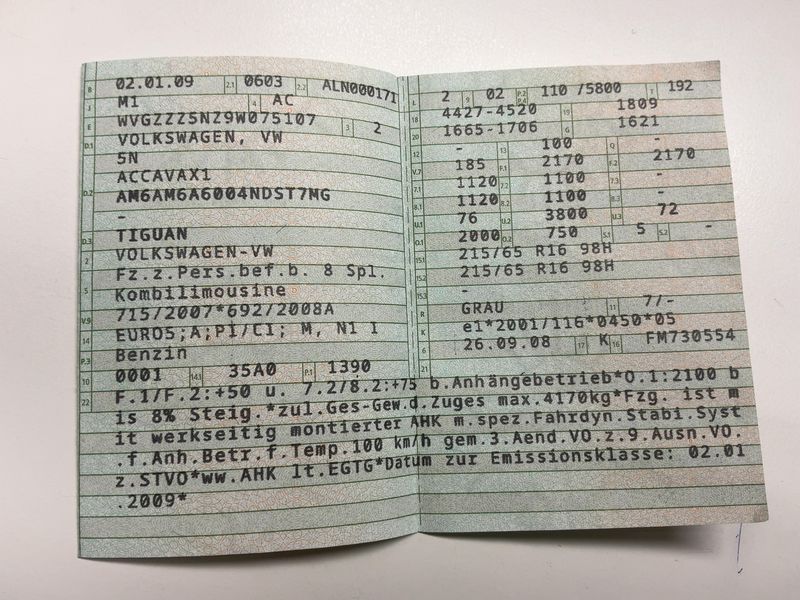 B 02.01.09 2.1 0603 2.2 ALN000171
J M1 4 AC
E WVGZZZ5NZ9W075107 3 2
D.1 VOLKSWAGEN, VW
5N
D.2 ACCAVAX1
AM6AM6A6004NDST7MG
-
D.3 TIGUAN
2 VOLKSWAGEN-VW
5 Fz.z.Pers.bef.b. 8 Spl.
Kombilimousine
V.9 715/2007*692/2008A
14 EURO5;A;PI/CI; M, N1 I
P.3 Benzin
10 0001 14.1 35A0 P.1 1390
L 2 9 02 P.2 P.4 110 /5800 T 192
18 4427-4520 19 1809
20 1665-1706 G 1621
12 - 13 100 Q -
V.7 185 F.1 2170 F.2 2170
7.1 1120 7.2 1100 7.3 -
8.1 1120 8.2 1100 8.3 -
U.1 76 U.2 3800 U.3 72
O.1 2000 O.2 750 S.1 5 S.2 -
15.1 215/65 R16 98H
15.2 215/65 R16 98H
15.3 -
R GRAU 11 7/-
K e1*2001/116*0450*05
6 26.09.08 17 K 16 FM730554
21
22 F.1/F.2:+50 u. 7.2/8.2:+75 b.Anhängebetrieb*O.1:2100 b
is 8% Steig.*zul.Ges-Gew.d.Zuges max.4170kg*Fzg. ist m
it werkseitig montierter AHK m.spez.Fahrdyn.Stabi.Syst
.f.Anh.Betr.f.Temp.100 km/h gem.3.Aend.VO.z.9.Ausn.VO.
z.STVO*ww.AHK lt.EGTG*Datum zur Emissionsklasse: 02.01
.2009*